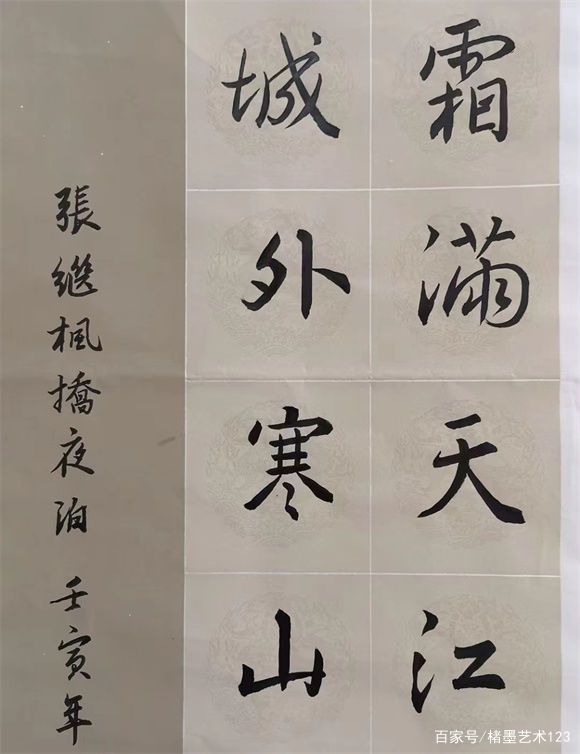 霜满天江
城外寒山
張継枫橋夜泊 壬寅年
百家号/楮墨艺术123